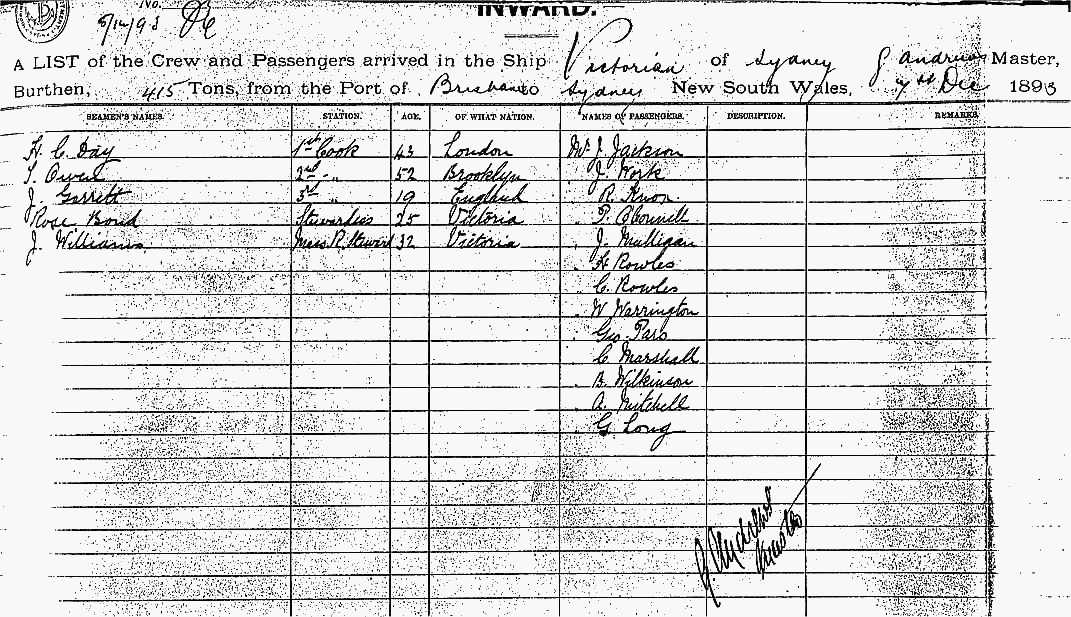 No.
INWARD.
A LIST of the Crew and Passengers arrived in the Ship Victorian of Sydney J Andrews Master,
Burthen, 415 Tons, from the Port of Brisbane to Sydney New South Wales, 7th Dec 1893
SEAMEN'S NAMES. STATION. AGE. OF WHAT NATION. NAMES OF PASSENGERS. DESCRIPTION. REMARKS
H. C. Day 1st Cook 43 London Mr J. Jackson
T. Owen 2nd " 52 Brooklyn J. Work
J. Garrett 3rd " 19 England R. Knox
Rose Bond Stewardess 25 Victoria P. O'Connell
J. Williams Mess. R. Steward 32 Victoria J. Mulligan
H Rowles
C. Rowles
W Warrington
Geo. Pars
C Marshall
B. Wilkinson
A. Mitchell
G Long
J. Andrews
Master